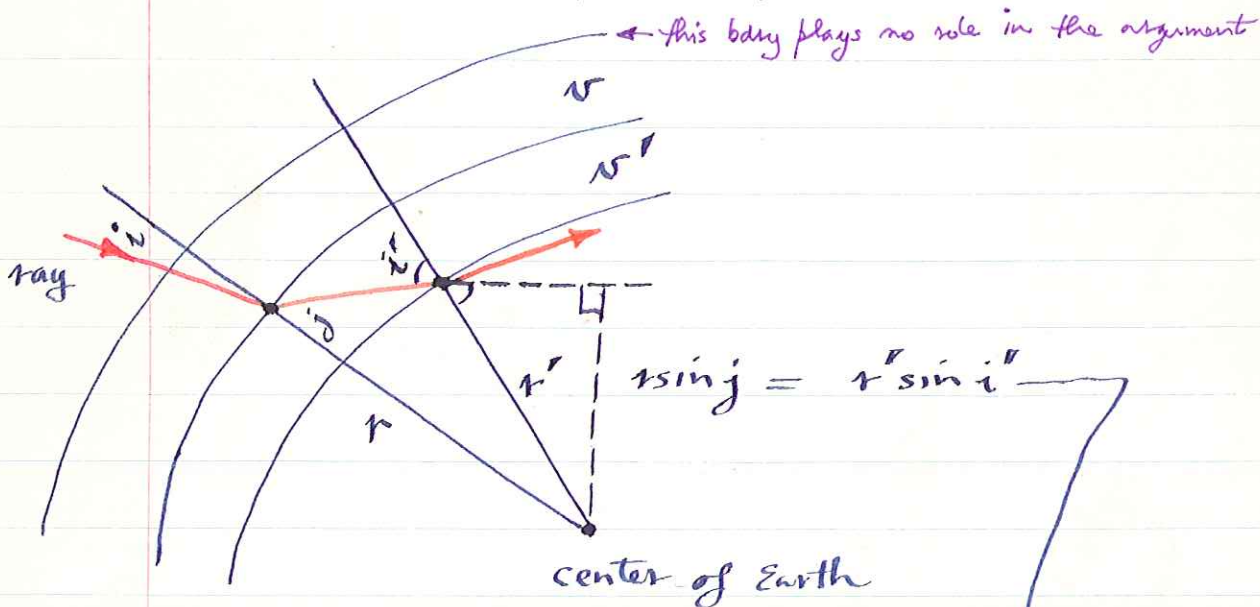 ← this bdry plays no role in the argument
v
v'
i
ray
i'
j
r'
r sin j = r' sin i'
r
center of Earth